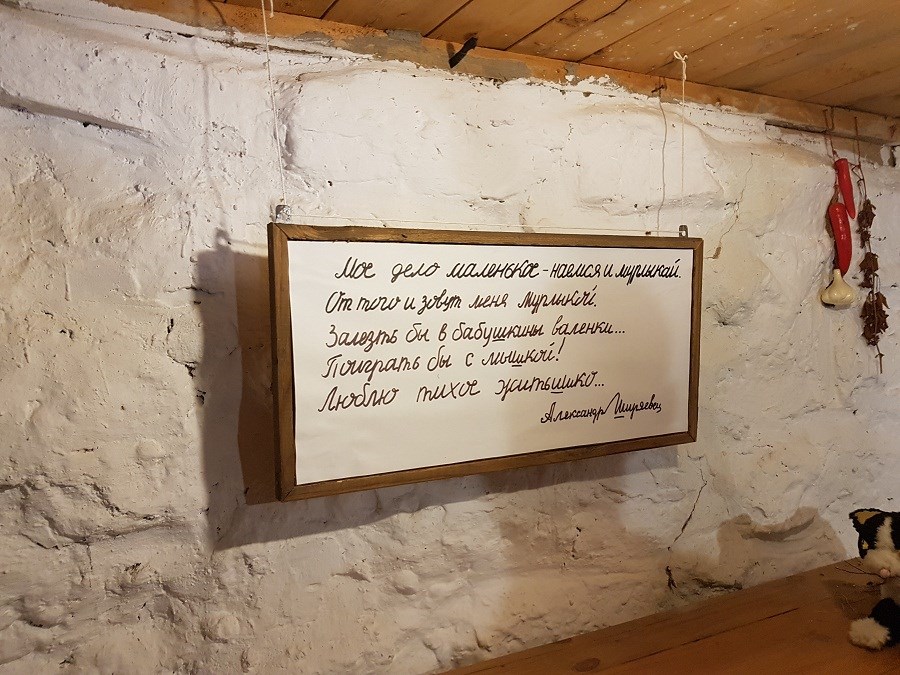 Мое дело маленькое - наемся и мурлыкай.
От того и зовут меня Мурлыкой.
Залезть бы в бабушкины валенки...
Поиграть бы с мышкой!
Люблю тихое житьишко...
Александр Ширяевец